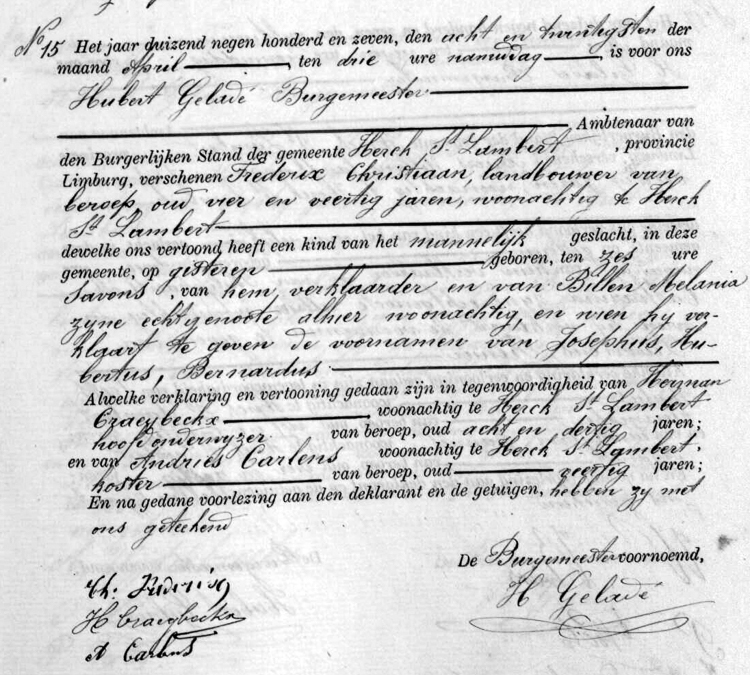 No 15 Het jaar duizend negen honderd en zeven, den acht en twintigsten der
maand April, ten drie ure namiddag, is voor ons
Hubert Geladé Burgemeester
Ambtenaar van
den Burgerlijken Stand der gemeente Herck St Lambert, provincie
Limburg, verschenen Frederix Christiaan, landbouwer van
beroep, oud vier en veertig jaren, woonachtig te Herck
St Lambert
dewelke ons vertoond heeft een kind van het mannelijk geslacht, in deze
gemeente, op gisteren geboren, ten zes ure
savons, van hem verklaarder en van Billen Melania
zyne echtgenoote alhier woonachtig, en wien hy ver-
klaart te geven de voornamen van Josephus, Hu-
bertus, Bernardus
Alwelke verklaring en vertooning gedaan zijn in tegenwoordigheid van Herman
Craeybeckx woonachtig te Herck St Lambert
hoofdonderwyzer van beroep, oud acht en dertig jaren;
en van Andries Carlens woonachtig te Herck St Lambert
koster van beroep, oud veertig jaren;
En na gedane voorlezing aan den deklarant en de getuigen, hebben zy met
ons geteekend
De Burgemeester voornoemd,
Ch. Frederix
H Geladé
H Craeybeckx
A Carlens